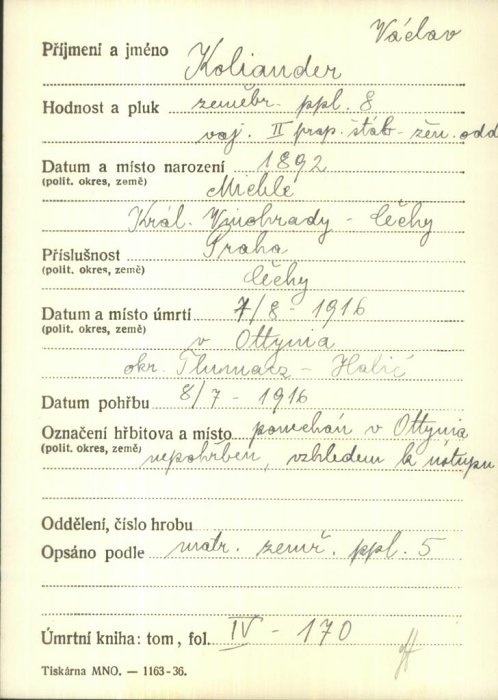 Václav
Příjmení a jméno Koliander
Hodnost a pluk zeměbr. ppl. 8
voj. II prap. štáb-žen. odd
Datum a místo narození 1892
(polit. okres, země) Michle
Král. Vinohrady - Čechy
Příslušnost Praha
(polit. okres, země) Čechy
Datum a místo úmrtí 7/8 - 1916
(polit. okres, země) v Ottynia
okr. Tlumacz - Halič
Datum pohřbu 8/7 - 1916
Označení hřbitova a místo ponechán v Ottynia
(polit. okres, země) nepohřben, vzhledem k ústupu
Oddělení, číslo hrobu
Opsáno podle matr. zemř. ppl. 5
Úmrtní kniha: tom, fol. IV - 170
Tiskárna MNO. — 1163-36.